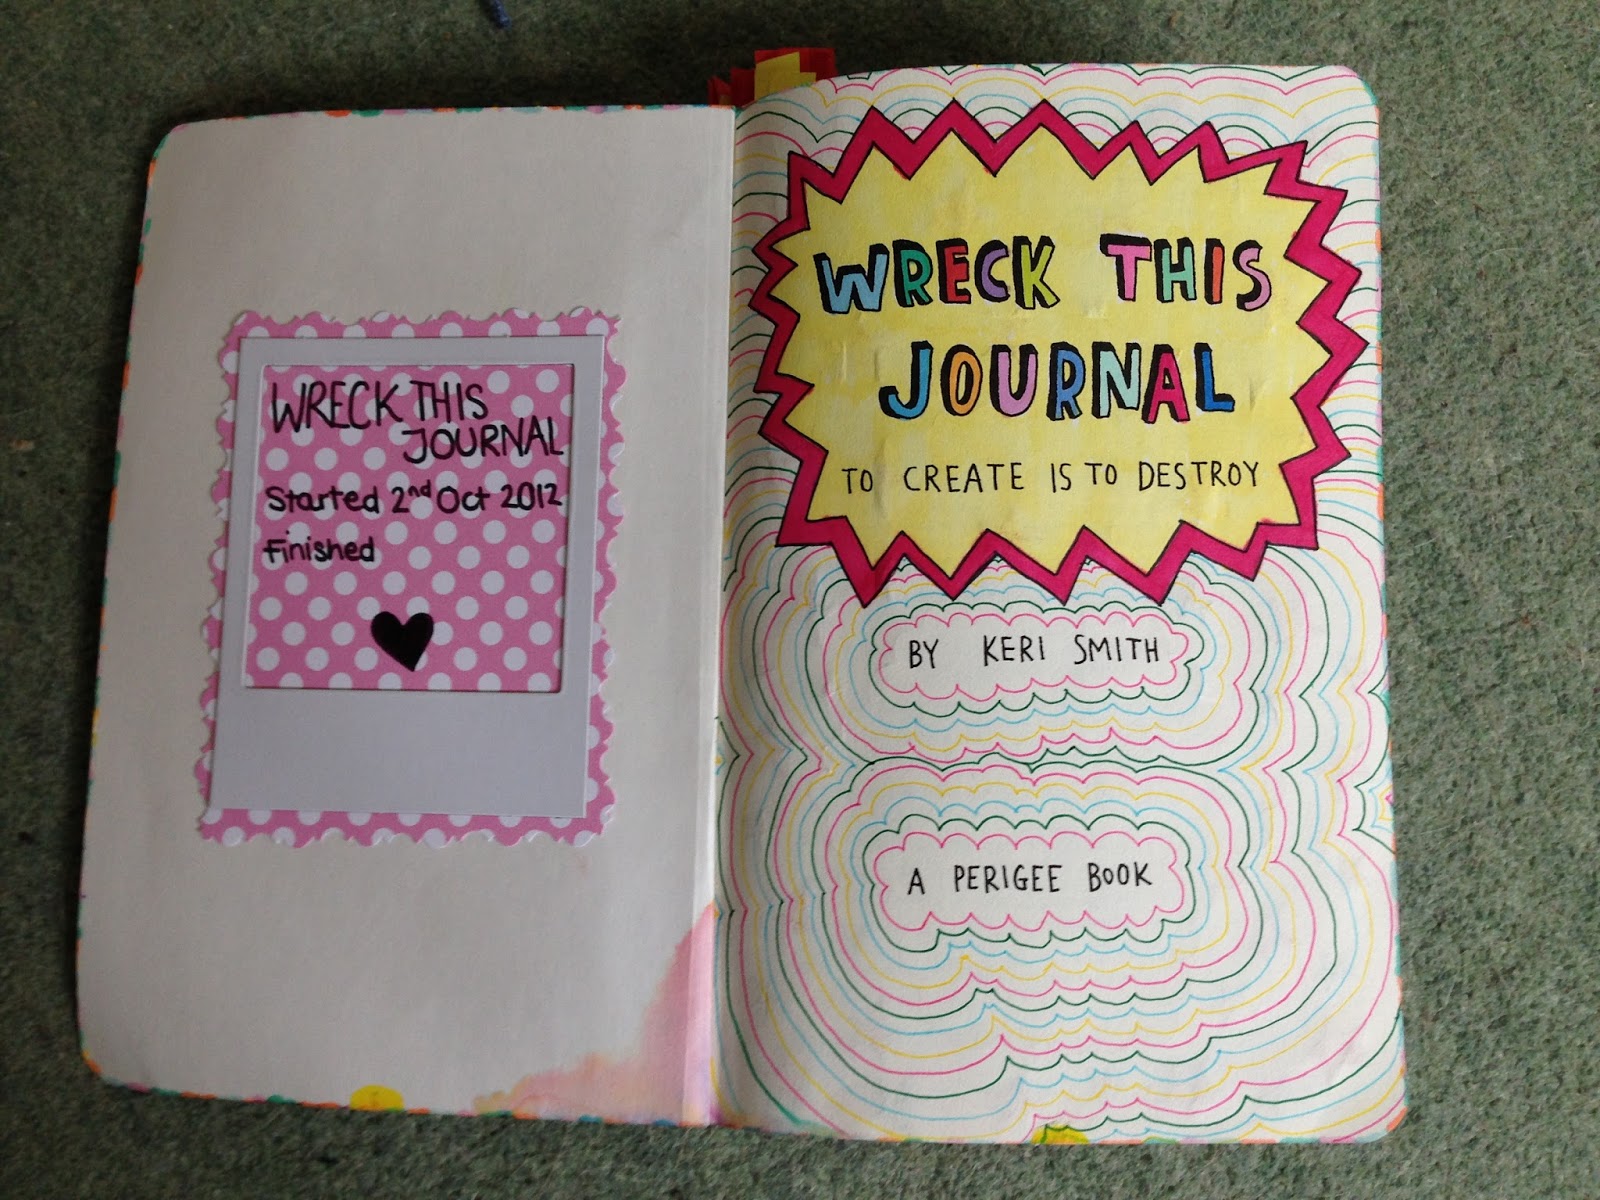 WRECK THIS
JOURNAL
Started 2nd Oct 2012
Finished
WRECK THIS
JOURNAL
TO CREATE IS TO DESTROY
BY KERI SMITH
A PERIGEE BOOK